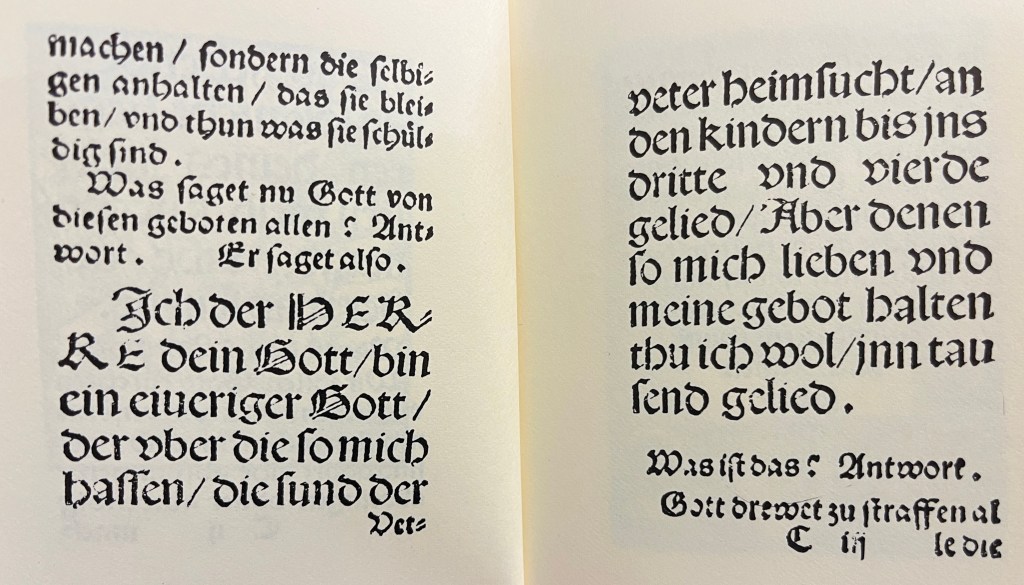 machen / sondern die selbi⸗
gen anhalten / das sie blei⸗
ben/ vnd thun was sie schül⸗
dig sind.
Was saget nu Gott von
diesen geboten allen? Ant⸗
wort. Er saget also.
Ich der HER⸗
RE dein Gott/bin
ein eiueriger Gott/
der vber die so mich
hassen/ die sund der
Vet⸗
veter heimsucht/an
den kindern bis jns
dritte vnd vierde
gelied/ Aber denen
so mich lieben vnd
meine gebot halten
thu ich wol/jnn tau
send gelied.
Was ist das? Antwort.
Gott drewet zu straffen al
C iij le die